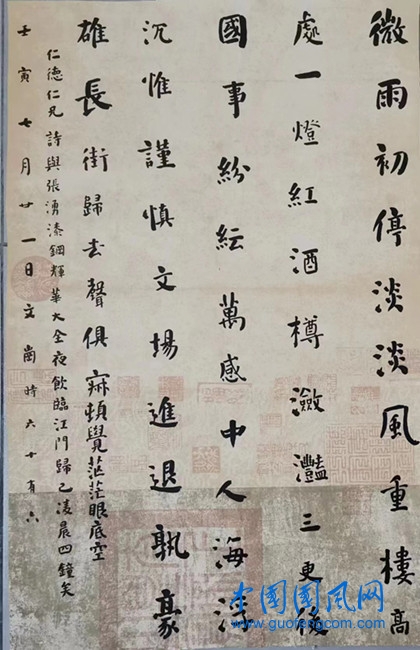 微雨初停淡淡風重樓高
處一燈紅酒樽瀲灩三更後
國事紛紜萬感中人海浮
沉惟謹慎文場進退孰豪
雄長街歸去聲俱寂頓覺茫茫眼底空
仁德仁兄詩與張湧溱鋼輝華大全夜飲臨江門歸已凌晨四鐘矣
壬寅七月廿一日文崗時六十有六
中国国风网
www.guofengcom.com